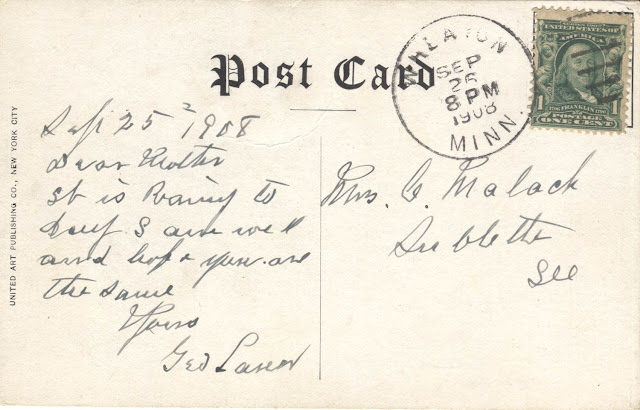 Post Card
WHEATON
SEP
26
8 PM
1908
MINN.
UNITED STATES OF AMERICA
FRANKLIN
POSTAGE
1 ONE CENT 1
UNITED ART PUBLISHING CO., NEW YORK CITY
Sept 25 1908
Dear Mother
It is Raniy to
Day. I am well
and hope you are
the same
Yours
Geo
Mrs. C. Malach
Sublette
Ill